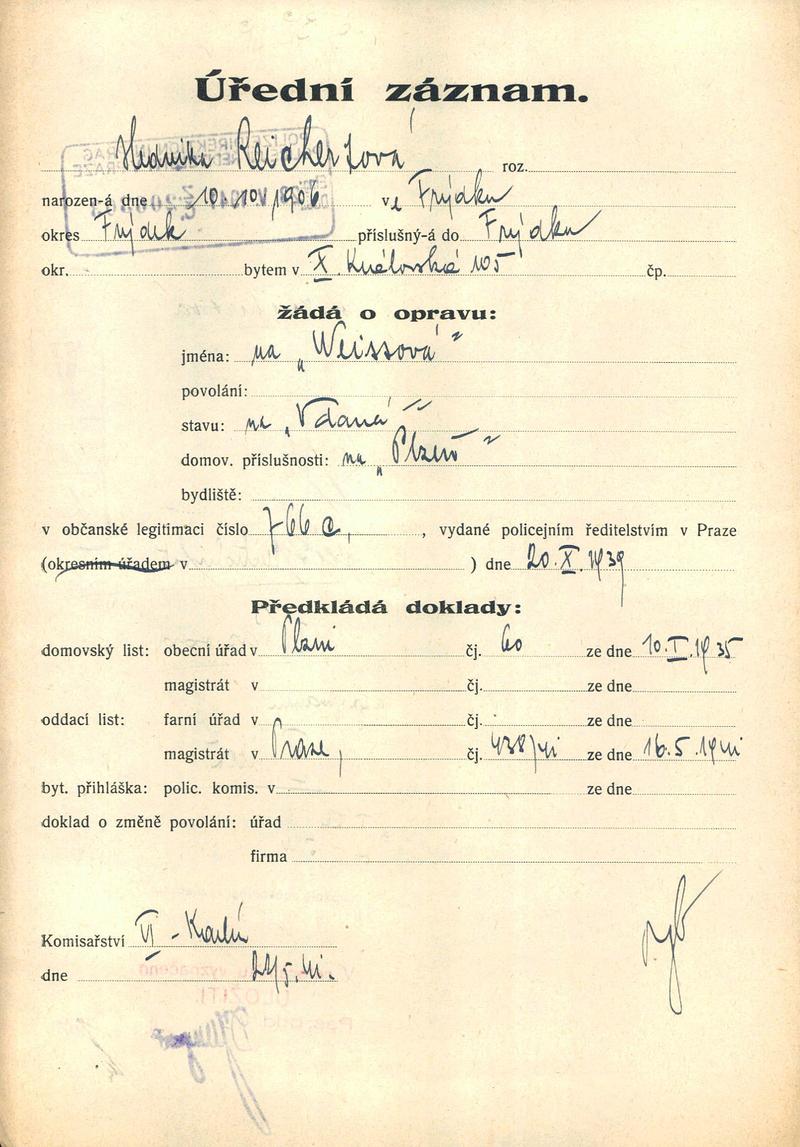 Úřední záznam.
Hedvika Reichertová roz.
narozen-á dne 10. 10. 1906 v Frýdku
okres Frýdek příslušný-á do Frýdku
okr. bytem v X. Královská 105 čp.
žádá o opravu:
jména: na „Weissová"
povolání:
stavu: na „Vdaná"
domov. příslušnosti: na „Plzeň"
bydliště:
v občanské legitimaci číslo 766 , vydané policejním ředitelstvím v Praze
(okresním úřadem v ) dne 20. X. 1939
Předkládá doklady:
domovský list: obecní úřad v Plzni čj. 60 ze dne 10. I. 1935
magistrát v čj. ze dne
oddací list: farní úřad v čj. ze dne
magistrát v Praze, čj. 438/41 ze dne 16. 5. 1941
byt. přihláška: polic. komis. v ze dne
doklad o změně povolání: úřad
firma
Komisařství VI - Karlín
dne 5. 41.